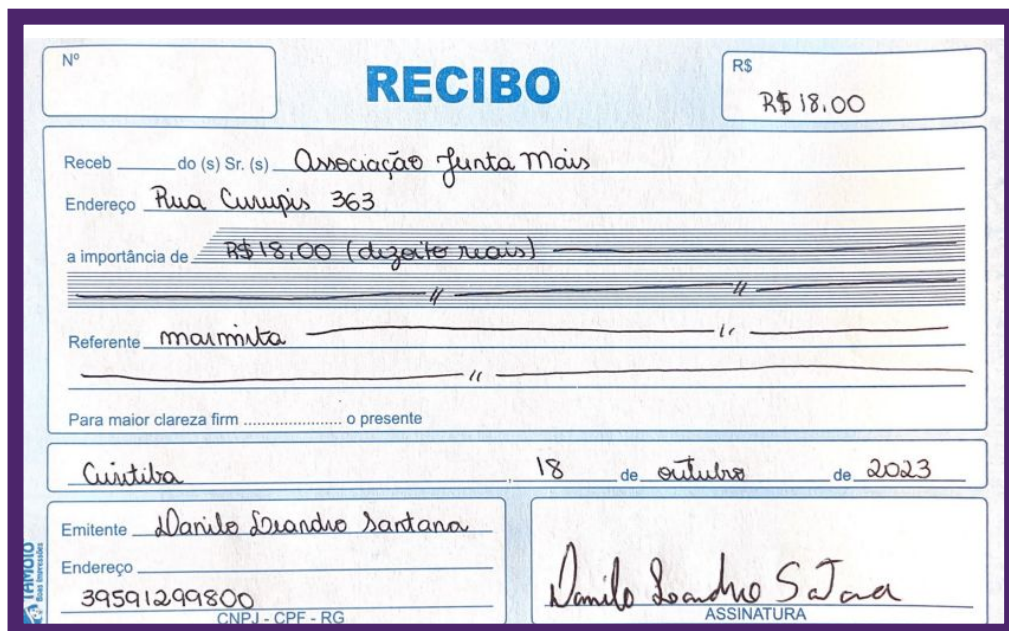 Nº
RECIBO
R$
R$ 18,00
Receb ______ do (s) Sr. (s) Associação Junta Mais
Endereço Rua Curupis 363
a importância de R$ 18,00 (dezoito reais)
Referente marmita
Para maior clareza firm ...................... o presente
Curitiba, 18 de outubro de 2023
Emitente Danilo Leandro Santana
Endereço
39591299800
CNPJ - CPF - RG
Danilo Leandro Santana
ASSINATURA
TAMOIO
Boas Impressões